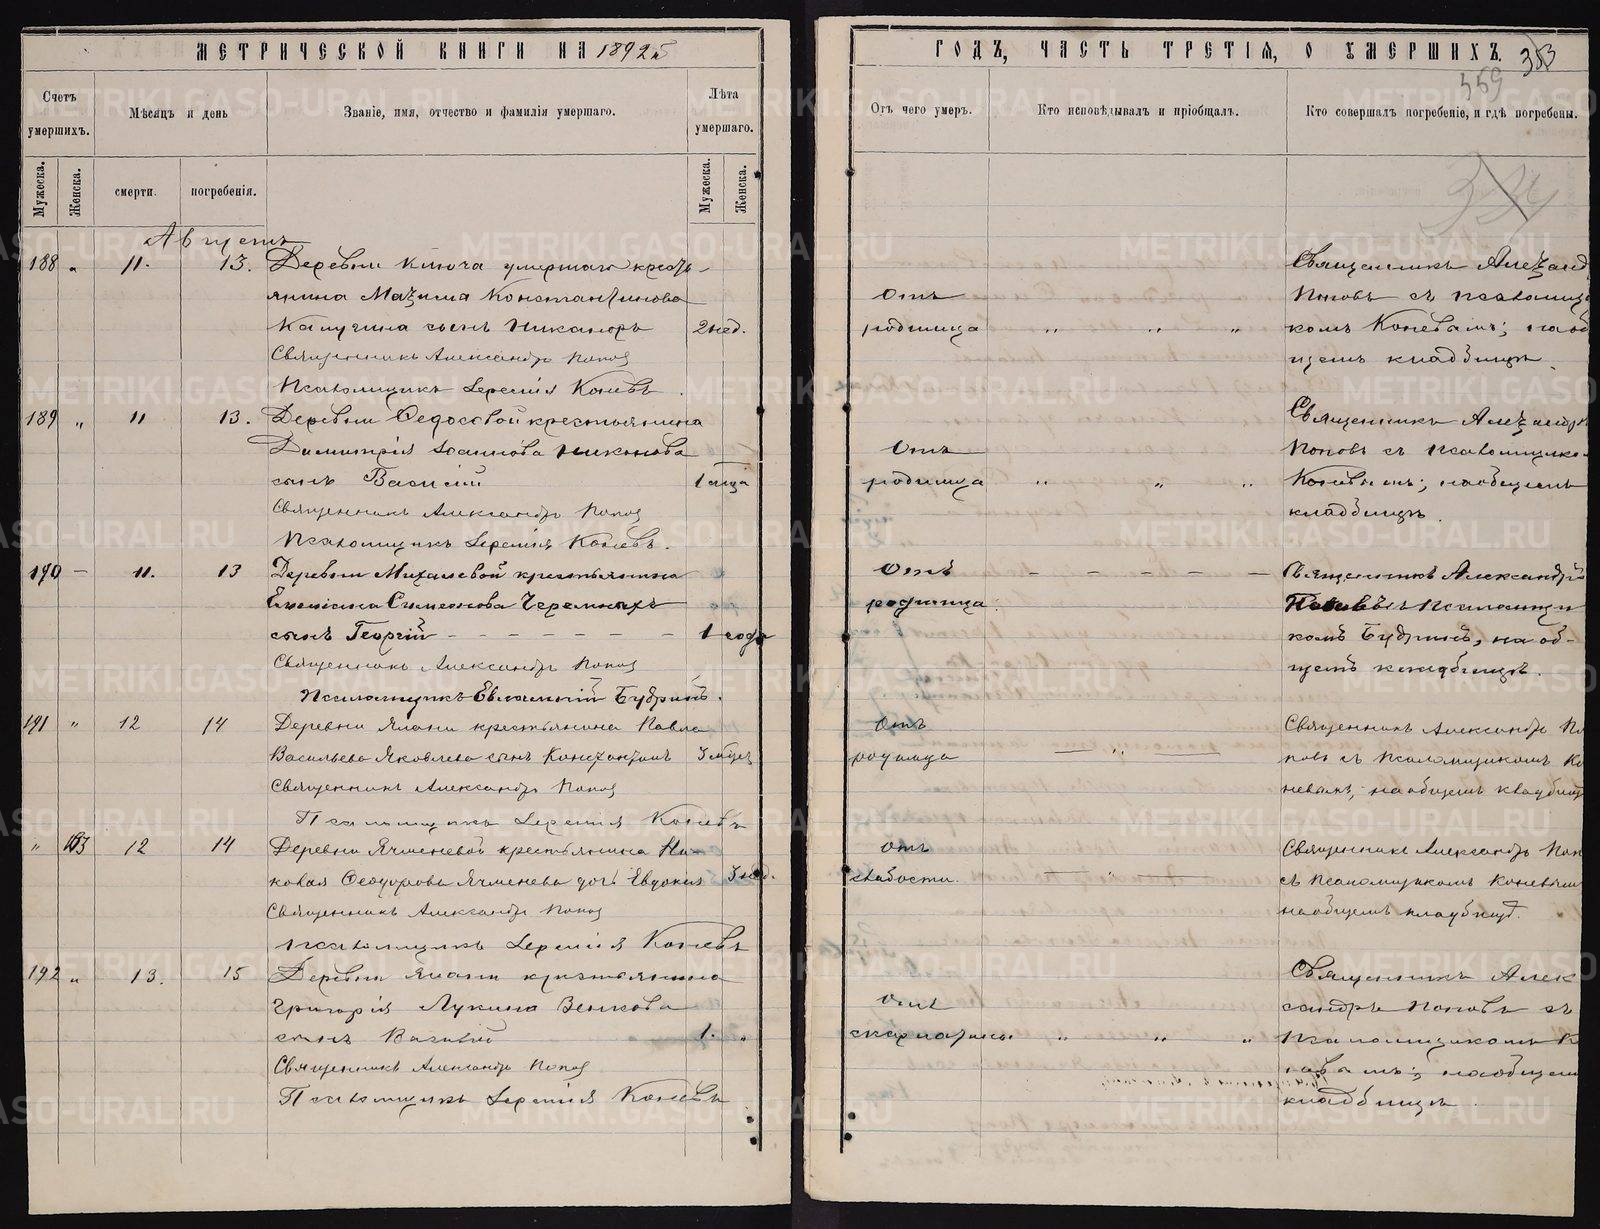 МЕТРИЧЕСКОЙ КНИГИ НА 1892й
Счетъ умершихъ.
Мѣсяцъ и день
Званіе, имя, отчество и фамилія умершаго.
Лѣта умершаго.
Мужеска.
Женска.
смерти.
погребенія.
Мужеска.
Женска.
Августъ
188 " 11. 13. Деревни Ключа умершаго кресть-
янина Максима Константинова
Калугина сынъ Никаноръ 2 нед.
Священникъ Александръ Попов
Псаломщикъ Іеремія Коневъ.
189 " 11 13. Деревни Ѳедосовой крестьянина
Димитрія Іоаннова Никонова
сынъ Василій 1 мца
Священникъ Александръ Попов
Псаломщикъ Іеремія Коневъ.
190 — 11. 13 Деревни Михалевой крестьянина
Симеонова Черемныхъ
сынъ Георгій - - - - - - 1 года
Священникъ Александръ Попов
Псаломщикъ Евлампій Будринъ.
191 " 12 14 Деревни Ялани крестьянина Павла
Васильева Яковлева сынъ Константинъ 3 мѣсц
Священникъ Александръ Попов
Псаломщикъ Іеремія Коневъ
" 193 12 14 Деревни Ячменевой крестьянина Иа-
кова Ѳеодорова Ячменева дочь Евдокія 3 нед.
Священникъ Александръ Попов
Псаломщикъ Іеремія Коневъ
192 " 13. 15 Деревни Ялани крестьянина
Григорія Лукина Венкова
сынъ Василій 1. "
Священникъ Александръ Попов
Псаломщикъ Іеремія Коневъ
ГОДЪ, ЧАСТЬ ТРЕТІЯ, О УМЕРШИХЪ. 353
359
Отъ чего умеръ.
Кто исповѣдывалъ и пріобщалъ.
Кто совершалъ погребеніе, и гдѣ погребены.
Священникъ Александ
Отъ Поповъ съ псаломщи
родимца " " " комъ Коневымъ; на об
щемъ кладбищѣ.
Священникъ Александръ
Отъ Поповъ съ псаломщико
родимца " " " Коневымъ; на общемъ
кладбищѣ.
Отъ - - - - - - Священникъ Александръ
родимца. Поповъ съ Псаломщи
комъ Будринъ, на об-
щемъ кладбищѣ.
Отъ Священникъ Александръ По
родимца — " — повъ съ Псаломщикомъ Ко
невымъ; на общемъ кладбищ
Отъ Священникъ Александръ Поп
слабости. — " — съ Псаломщикомъ Коневым
на общемъ кладбищѣ.
Священникъ Алек
Отъ сандръ Поповъ съ
скарлатины " " " Псаломщикомъ К
невымъ; на общем
кладбищѣ.
METRIKI.GASO-URAL.RU